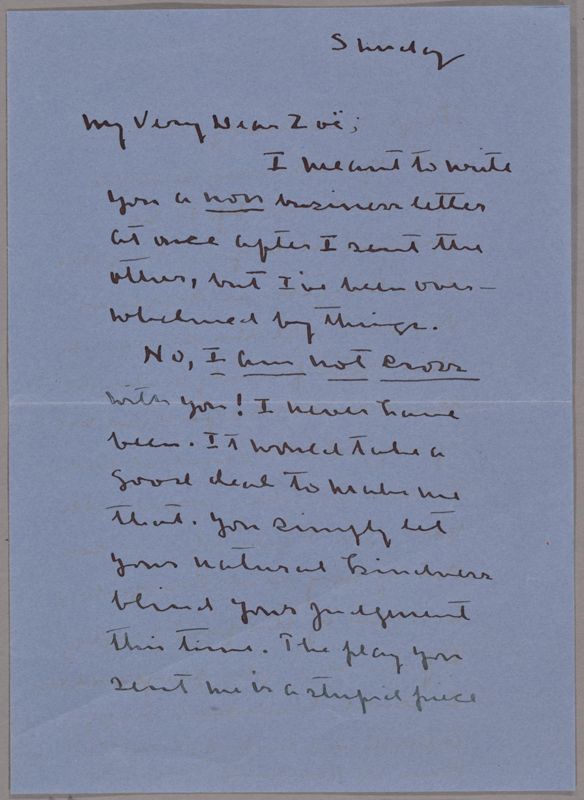 Sunday
My Very Dear Zoë;
I meant to write
you a non business letter
at once after I sent the
other, but I've been over-
whelmed by things.
No, I am not cross
with you! I never have
been. It would take a
good deal to make me
that. You simply let
your natural kindness
blind your judgment
this time. The play you
sent me is a stupid piece